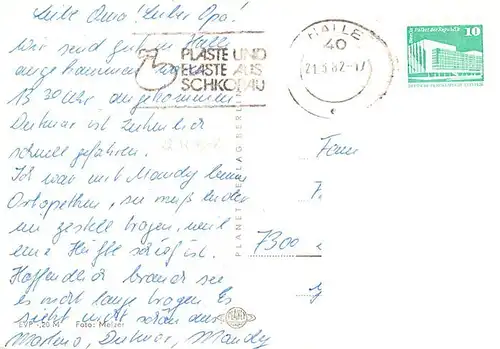 Liebe Oma! Lieber Opa!
Wir sind gut in Halle
angekommen
13 30 Uhr angekommen.
Dietmar ist ziemlich
schnell gefahren.
Ich war mit Mandy beim
Orthopäden, sie muß leider
ein gestell tragen, weil
eine Hüfte schief ist.
Hoffendlich brauch sie
es nicht lange tragen Es
sieht nicht schön aus
Martina, Dietmar, Mandy
PLASTE UND
ELASTE AUS
SCHKOPAU
HALLE
40
10
PLANET-VERLAG BERLIN
Fam
7300
EVP -,20 M Foto: Melzer